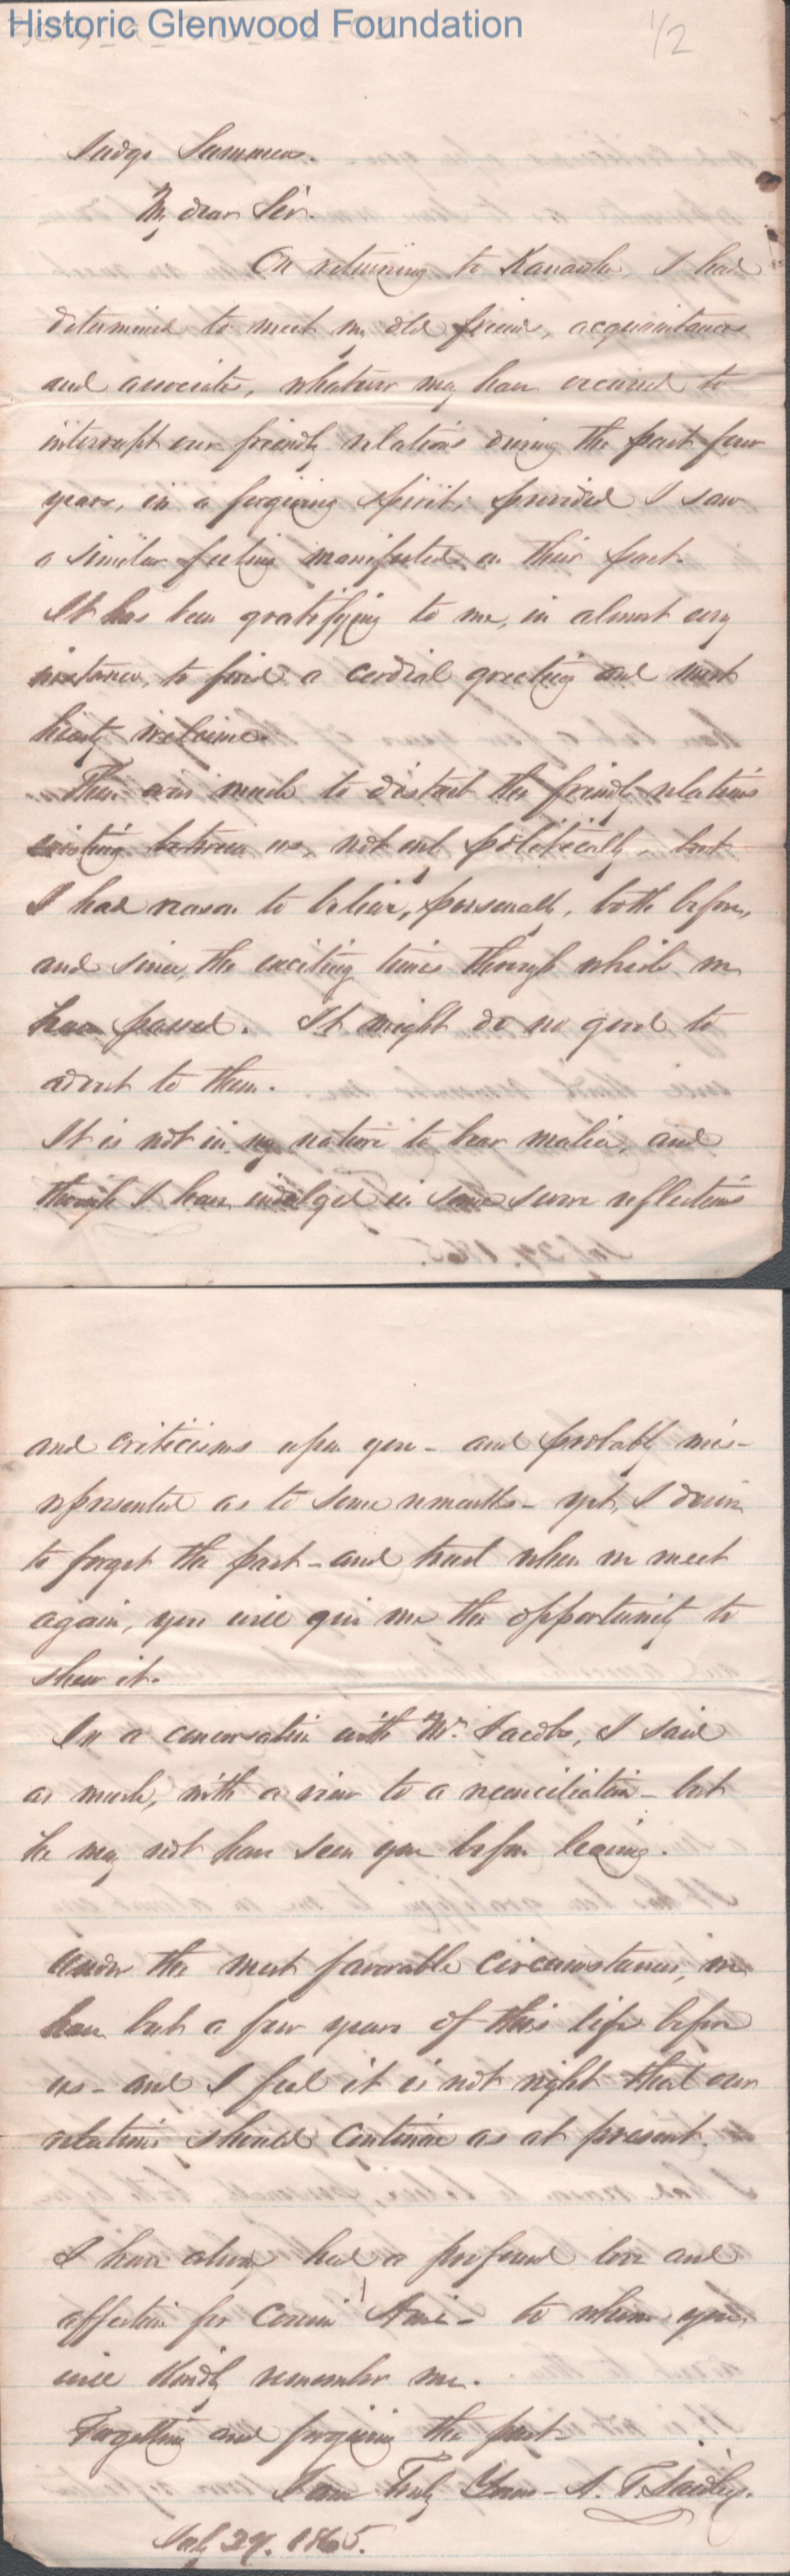 Historic Glenwood Foundation
1/2
Judge Summers.
My dear Sir.
On returning to Kanawha, I had
determined to meet my old friends, acquaintances
and associates, whatever may have occurred to
interrupt our friendly relations during the past four
years, in a forgiving spirit; provided I saw
a similar feeling manifested on their part.
It has been gratifying to me, in almost every
instance, to find a cordial greeting and most
hearty welcome.
There was much to disturb the friendly relations
existing between us, not only politically, but
I had reason to believe, personally, both before,
and since, the exciting times through which we
have passed. It might do no good to
advert to them.
It is not in my nature to bear malice, and
though I have indulged in some severe reflections
and criticisms upon you - and probably mis-
represented as to some remarks - yet, I desire
to forget the past - and trust when we meet
again, you will give me the opportunity to
shew it.
In a conversation with Mr. Jacobs, I said
as much, with a view to a reconciliation - but
he may not have seen you before leaving.
Under the most favorable circumstances, we
have but a few years of this life before
us - and I feel it is not right that our
relations should continue as at present.
I have always had a profound love and
affection for Cousin - to whom you
will kindly remember me.
Forgetting and forgiving the past -
I am Truly Yours - A. T. Laidley.
July 29. 1865.